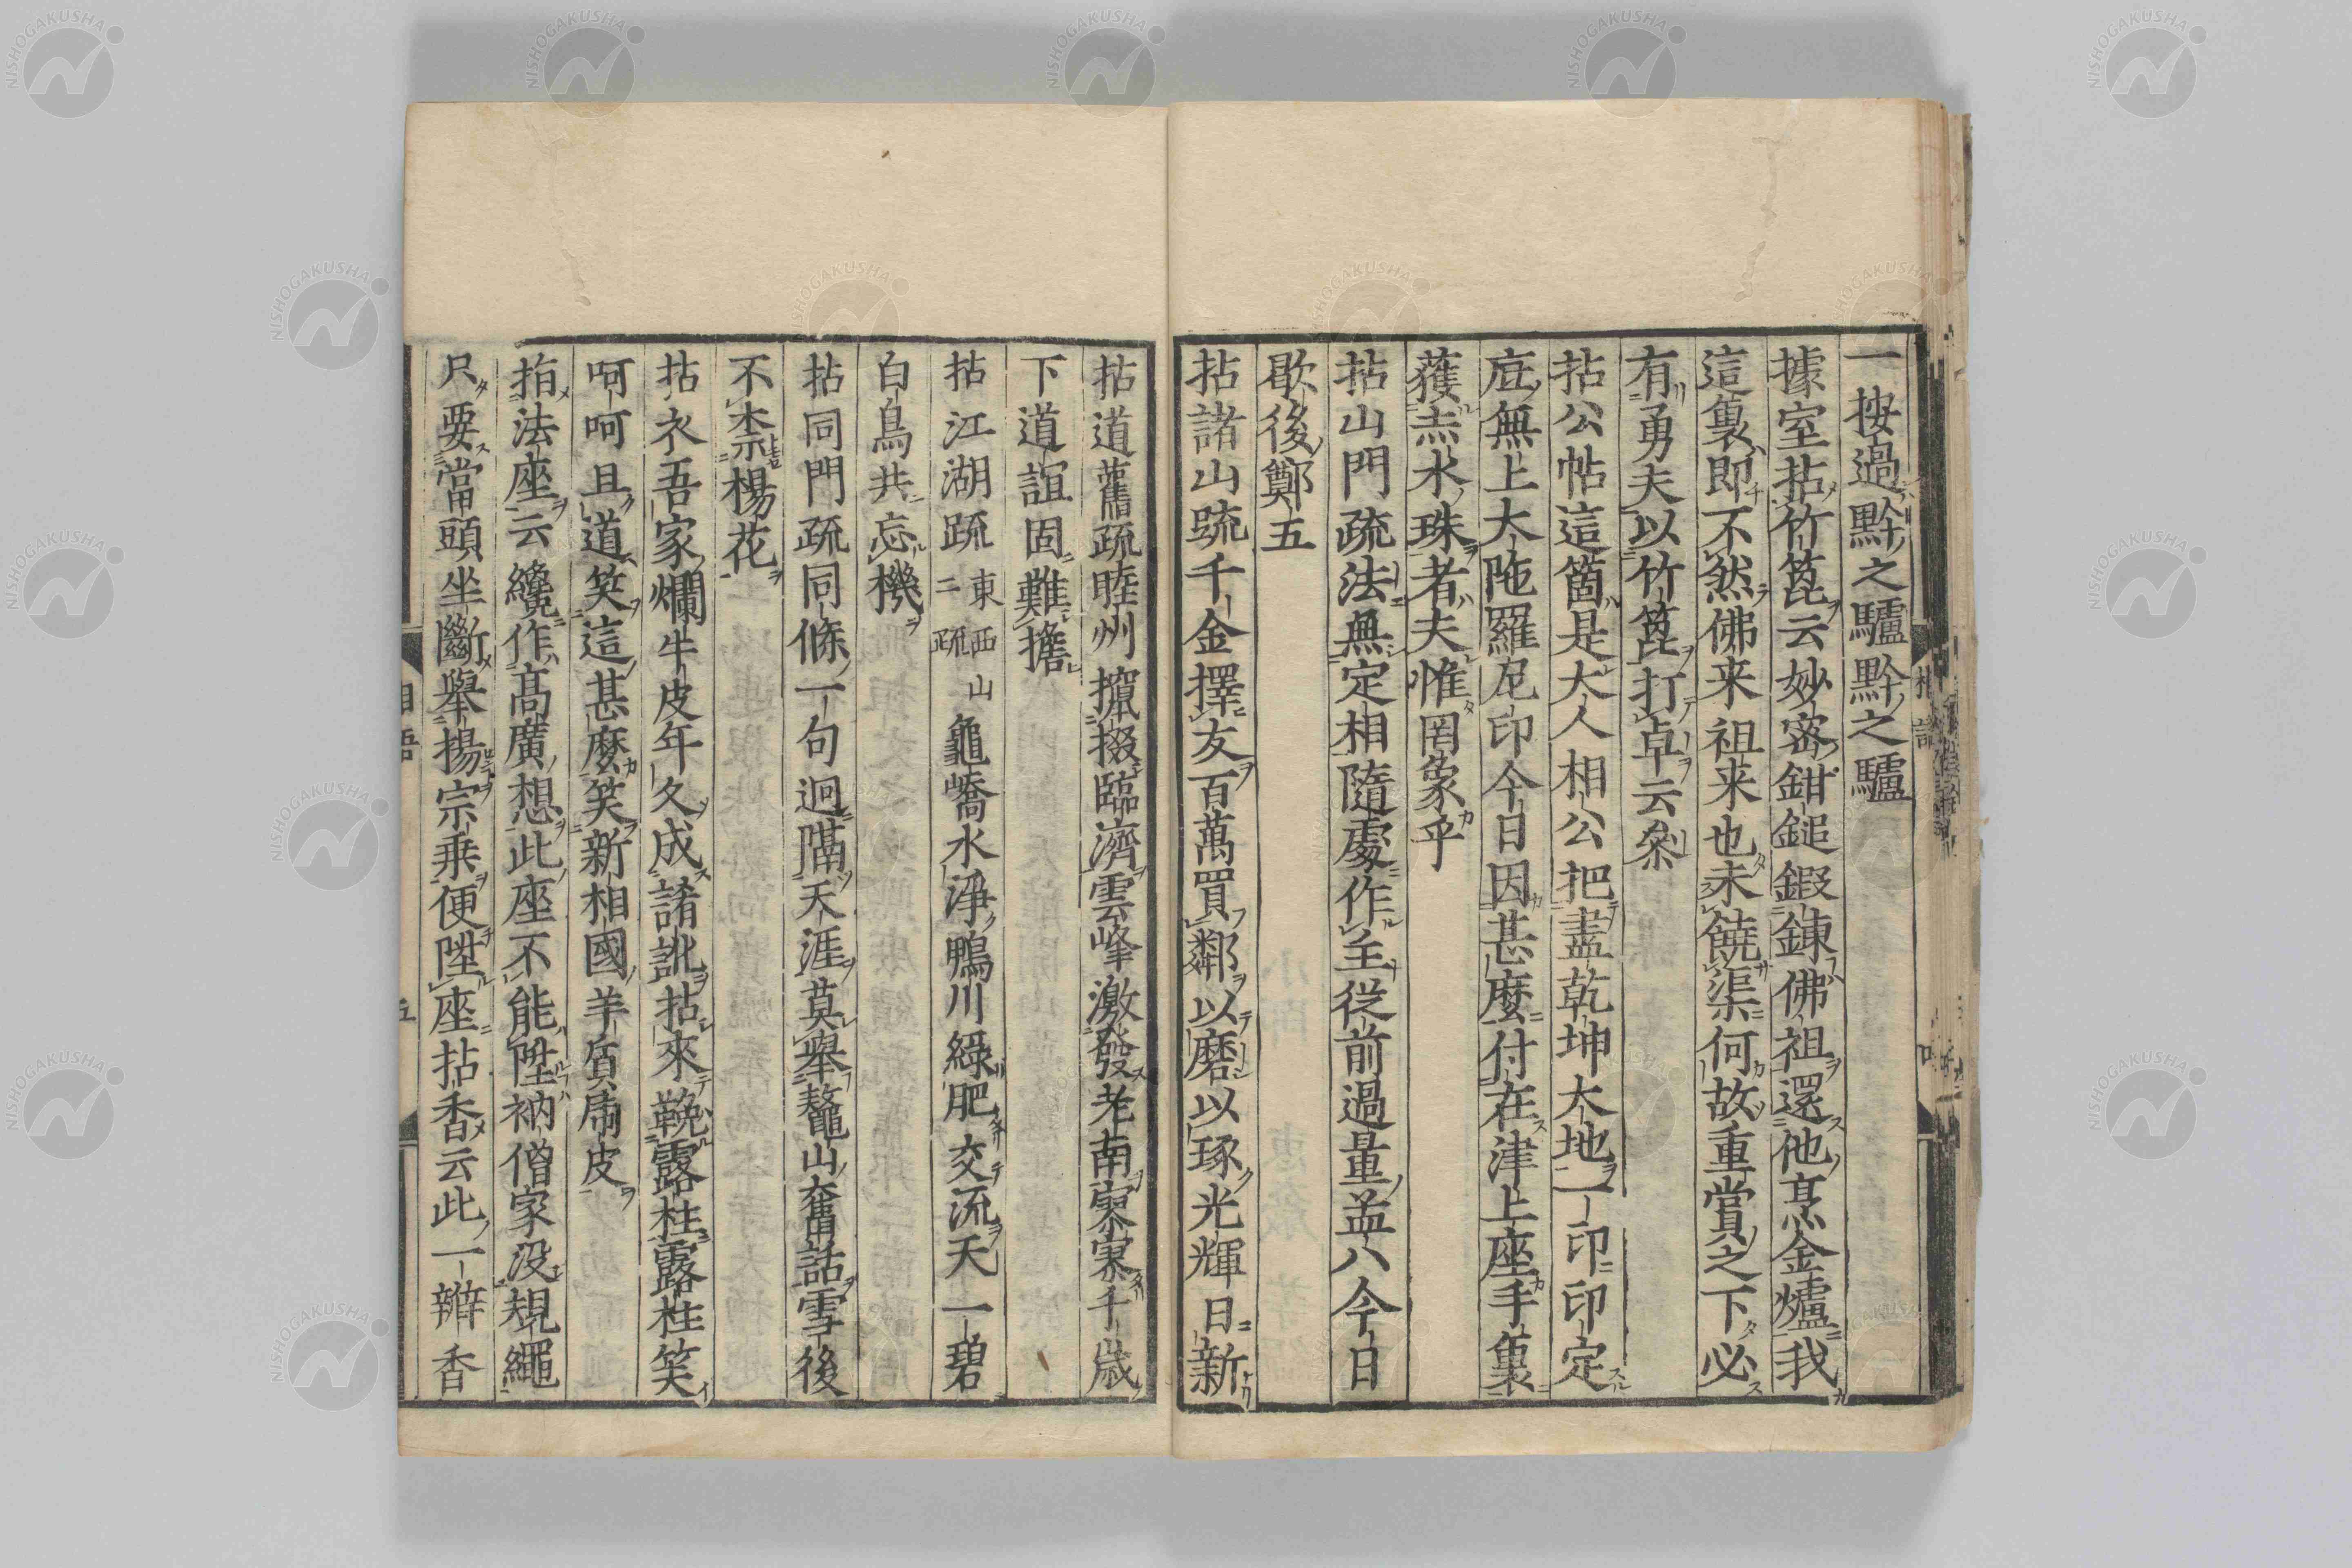 一按過黔之驢黔之驢
據室拈竹篦云妙密鉗鎚鍜錬佛祖還他烹金爐我
這裏即不然佛来祖来也未饒渠何故重賞之下必
有勇夫以竹篦打卓云叅
拈公帖這箇是大人相公把盡乾坤大地一印印定
底無上大陁羅尼印今日因甚麼付在津上座手裏
蒦⾚水珠者夫惟罔象乎
拈山門疏法無定相隨處作主從前過量益八今日
歇後鄭五
拈諸山䟽千金擇友百萬買鄰以磨以琢光輝日新
拈道舊疏睦州攛掇臨濟雲峰激發老南寥寥千歳
下道誼固難擔
拈江湖疏東西山二疏龜嶠水淨鴨川綠肥交流天一碧
白鳥共忘機
拈同門疏同條一句逈隔天涯莫舉鼇山奮話雪後
不柰楊花
拈衣吾家爛牛皮年久成誵訛拈來鞔露柱露柱笑
呵呵且道笑這甚麼笑新相國羊質虎皮
指法座云纔作高廣想此座不能陞衲僧家没規繩
只要當頭坐斷舉揚宗乗便陞座拈香云此一瓣香
NISHOGAKUSHA